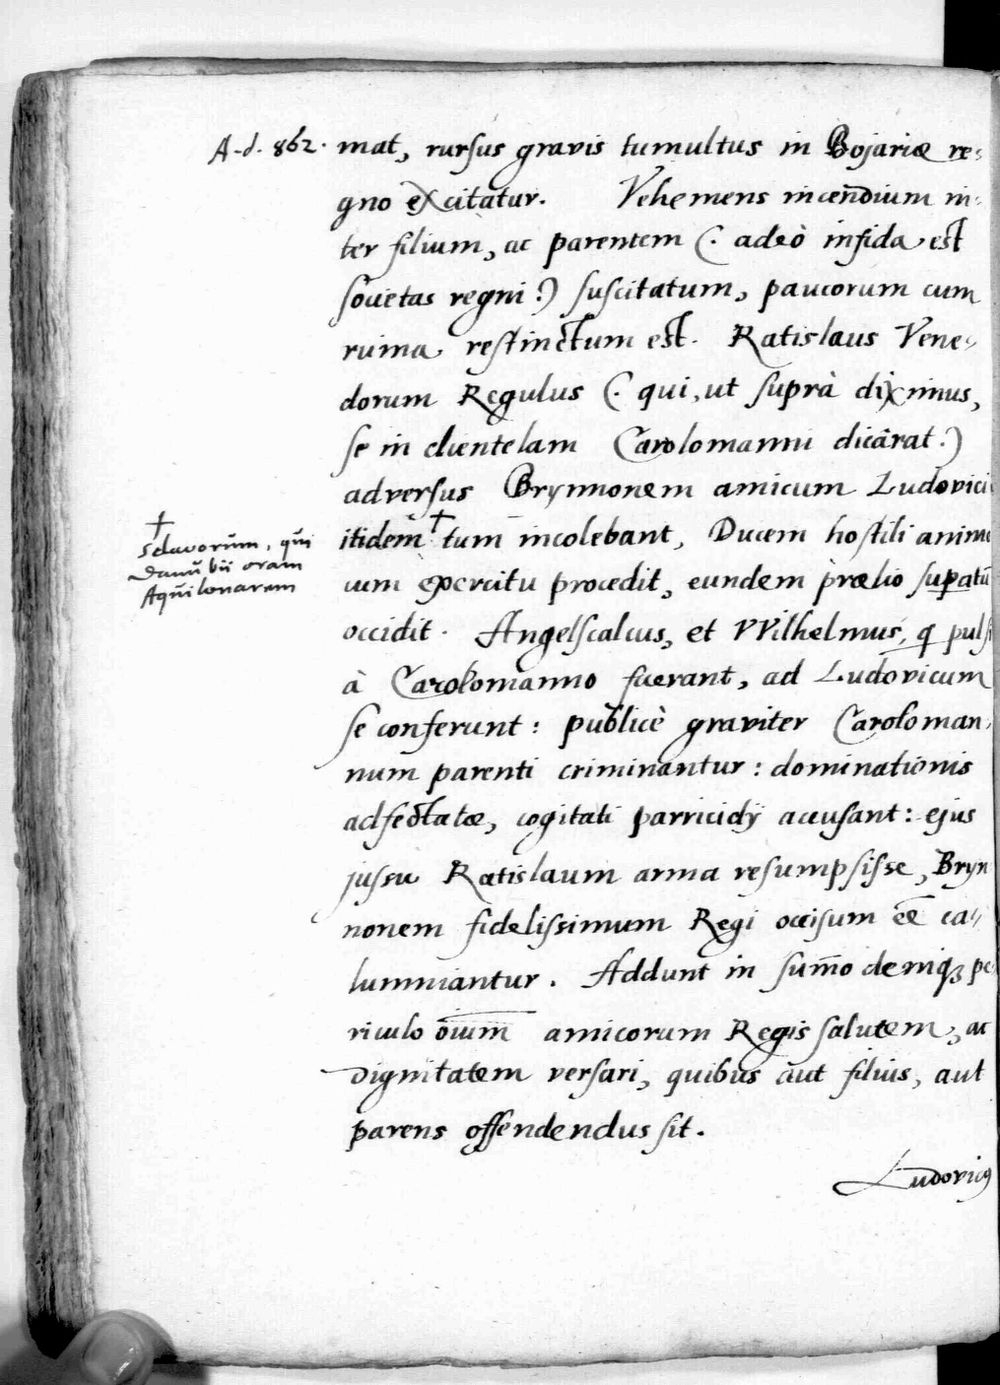 A.d. 862. mat, rursus gravis tumultus in Bojariæ re-
gno excitatur. Vehemens incendium in-
ter filium, ac parentem (: adeò infida est
societas regni :) suscitatum, paucorum cum
ruina restinctum est. Ratislaus Vene-
dorum Regulus (: qui, ut suprà diximus,
se in clientelam Carolomanni dicârat :)
adversus Brynnonem amicum Ludovici
itidem † tum incolebant, Ducem hostili animo
†
Sclavorum, qui
Danubii oram
Aquilonarem
cum exercitu procedit, eundem prælio supatū
occidit. Angelscalcus, et VVilhelmus, q pulsi
à Carolomanno fuerant, ad Ludovicum
se conferunt: publicè graviter Caroloman-
num parenti criminantur: dominationis
adfectatæ, cogitati parricidij accusant: ejus
jussu Ratislaum arma resumpsisse, Bryn
nonem fidelissimum Regi occisum eē ca-
lumniantur. Addunt in sum̄o deniq; pe-
riculo oīum amicorum Regis salutem, ac
dignitatem versari, quibus aut filius, aut
parens offendendus sit.
Ludovicus